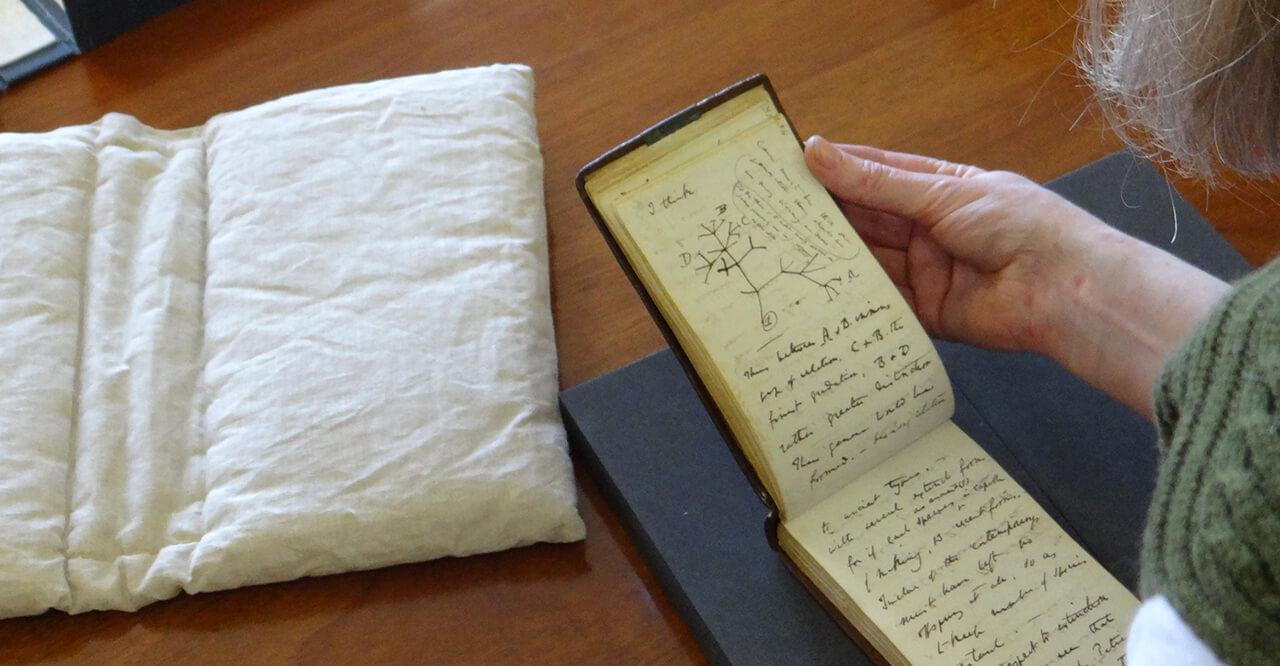 I think
B
C
D
A
1
Thus between A & B. immens
gap of relation. C & B. the
finest gradation, B & D
rather greater distinction
Thus genera would be
formed. — bearing relation
to ancient types. —
with several extinct forms
for if each species an ancient is capable
of making, 13 recent forms,
Twelve of the contemporarys
must have left no
offspring at all, so as
to keep number of species
constant. —
respect to extinction
see that
Petise